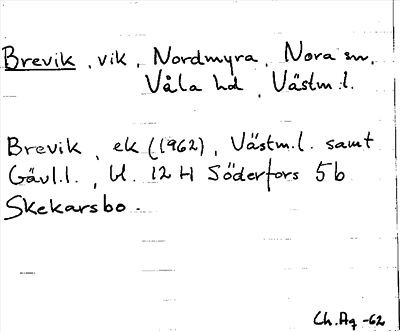 Brevik, vik, Nordmyra, Nora sn,
Våla hd, Västm.l.
Brevik, ek (1962), Västm.l. samt
Gävl.l., bl. 12 H Söderfors 5b
Skekarsbo.
Ch.Ag -62